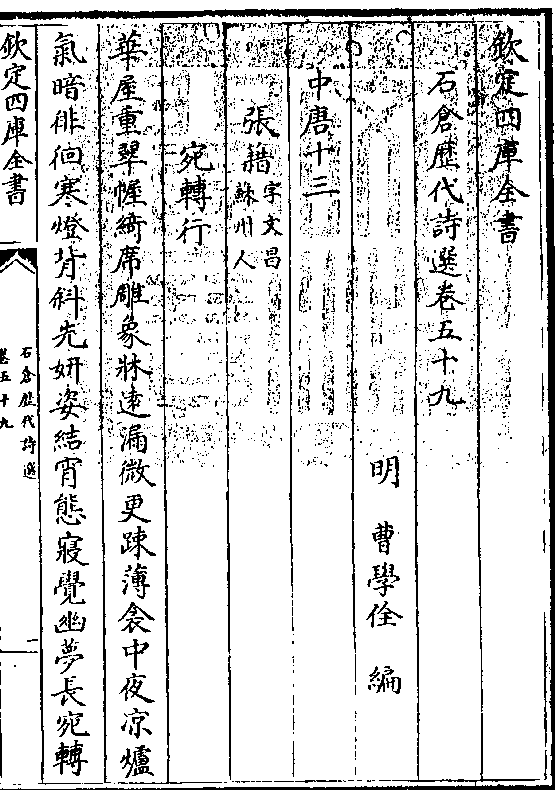 欽定四庫全書
石倉歷代詩選卷五十九
明 曹學佺 編
中唐十三
張籍字文昌蘇州人
宛轉行
華屋重翠幄綺席雕象牀遠漏微更踈薄衾中夜凉爐
氣暗徘徊寒燈背斜先妍姿結宵態寢覺幽夢長宛轉
欽定四庫全書
石倉歷代詩選
卷五十九
一